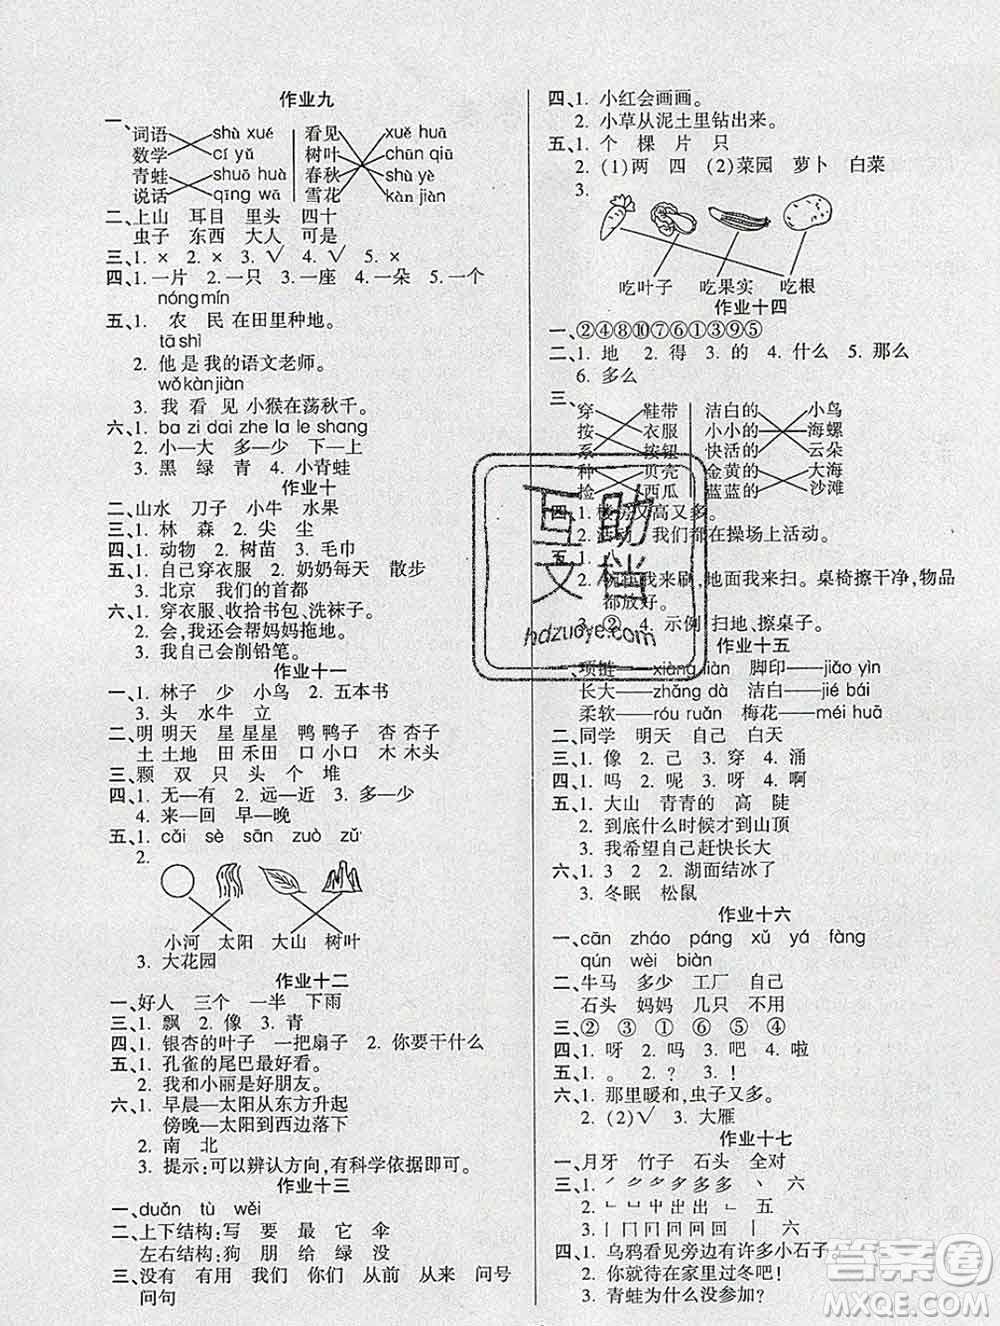 作业九
一、
词语 shù xué 看见 xuě huā
数学 cí yǔ 树叶 chūn qiū
青蛙 shuō huà 春秋 shù yè
说话 qīng wā 雪花 kàn jiàn
二、上山 耳目 里头 四十
虫子 东西 大人 可是
三、1. × 2. × 3. √ 4. √ 5. ×
四、1. 一片 2. 一只 3. 一座 4. 一朵 5. 一个
nóng mín
五、1. 农 民 在田里种地。
tā shì
2. 他 是 我的语文老师。
wǒ kàn jiàn
3. 我 看 见 小猴在荡秋千。
六、1. ba zi dai zhe la le shang
2. 小—大 多—少 下—上
3. 黑 绿 青 4. 小青蛙
作业十
二、山水 刀子 小牛 水果
三、1. 林 森 2. 尖 尘
四、1. 动物 2. 树苗 3. 毛巾
五、1. 自己穿衣服 2. 奶奶每天 散步
3. 北京 我们的首都
六、1. 穿衣服、收拾书包、洗袜子。
2. 会,我还会帮妈妈拖地。
3. 我自己会削铅笔。
作业十一
一、1. 林子 少 小鸟 2. 五本书
3. 头 水牛 立
二、明 明天 星 星星 鸭 鸭子 杏 杏子
土 土地 田 禾田 口 小口 木 木头
三、颗 双 只 头 个 堆
四、1. 无—有 2. 远—近 3. 多—少
4. 来—回 早—晚
五、1. cǎi sè sān zuò zǔ
2.
小河 太阳 大山 树叶
3. 大花园
作业十二
一、好人 三个 一半 下雨
三、1. 飘 2. 像 3. 青
四、1. 银杏的叶子 一把扇子 2. 你要干什么
五、1. 孔雀的尾巴最好看。
2. 我和小丽是好朋友。
六、1. 早晨—太阳从东方升起
傍晚—太阳到西边落下
2. 南 北
3. 提示:可以辨认方向,有科学依据即可。
作业十三
一、duǎn tù wěi
二、上下结构:写 要 最 它 伞
左右结构:狗 朋 给 绿 没
三、没有 有用 我们 你们 从前 从来 问号
问句
四、1. 小红会画画。
2. 小草从泥土里钻出来。
五、1. 个 棵 片 只
2. (1)两 四 (2)菜园 萝卜 白菜
3.
吃叶子 吃果实 吃根
作业十四
一、②④⑧⑩⑦⑥①③⑨⑤
二、1. 地 2. 得 3. 的 4. 什么 5. 那么
6. 多么
三、
穿 鞋带 洁白的 小鸟
按 衣服 小小的 海螺
系 按钮 快活的 云朵
种 贝壳 金黄的 大海
捡 西瓜 蓝蓝的 沙滩
四、1. 楼房又高又多。
2. 活动 我们都在操场上活动。
五、1. 八
2. 碗筷我来刷,地面我来扫。桌椅擦干净,物品
都放好。
3. ② 4. 示例:扫地、擦桌子。
作业十五
一、项链——xiàng liàn 脚印——jiǎo yìn
长大——zhǎng dà 洁白——jié bái
柔软——róu ruǎn 梅花——méi huā
二、同学 明天 自己 白天
三、1. 像 2. 己 3. 穿 4. 涌
四、1. 吗 2. 呢 3. 呀 4. 啊
五、1. 大山 青青的 高 陡
2. 到底什么时候才到山顶
3. 我希望自己赶快长大
六、1. 3 2 2. 湖面结冰了
3. 冬眠 松鼠
作业十六
一、cān zháo páng xǔ yá fàng
qún wèi biàn
二、牛马 多少 工厂 自己
石头 妈妈 几只 不用
三、② ③ ① ⑥ ④ ⑤
四、1. 呀 2. 吗 3. 吧 4. 啦
五、1. 。 2. ? 3. !
六、1. 那里暖和,虫子又多。
2. (2)√ 3. 大雁
作业十七
一、月牙 竹子 石头 全对
四、1. 乌鸦看见旁边有许多小石子。
2. 你就待在这里过冬吧!
3. 青蛙为什么没参加?
互助
文档
hdzuoye.com
答案圈
MXQE.COM